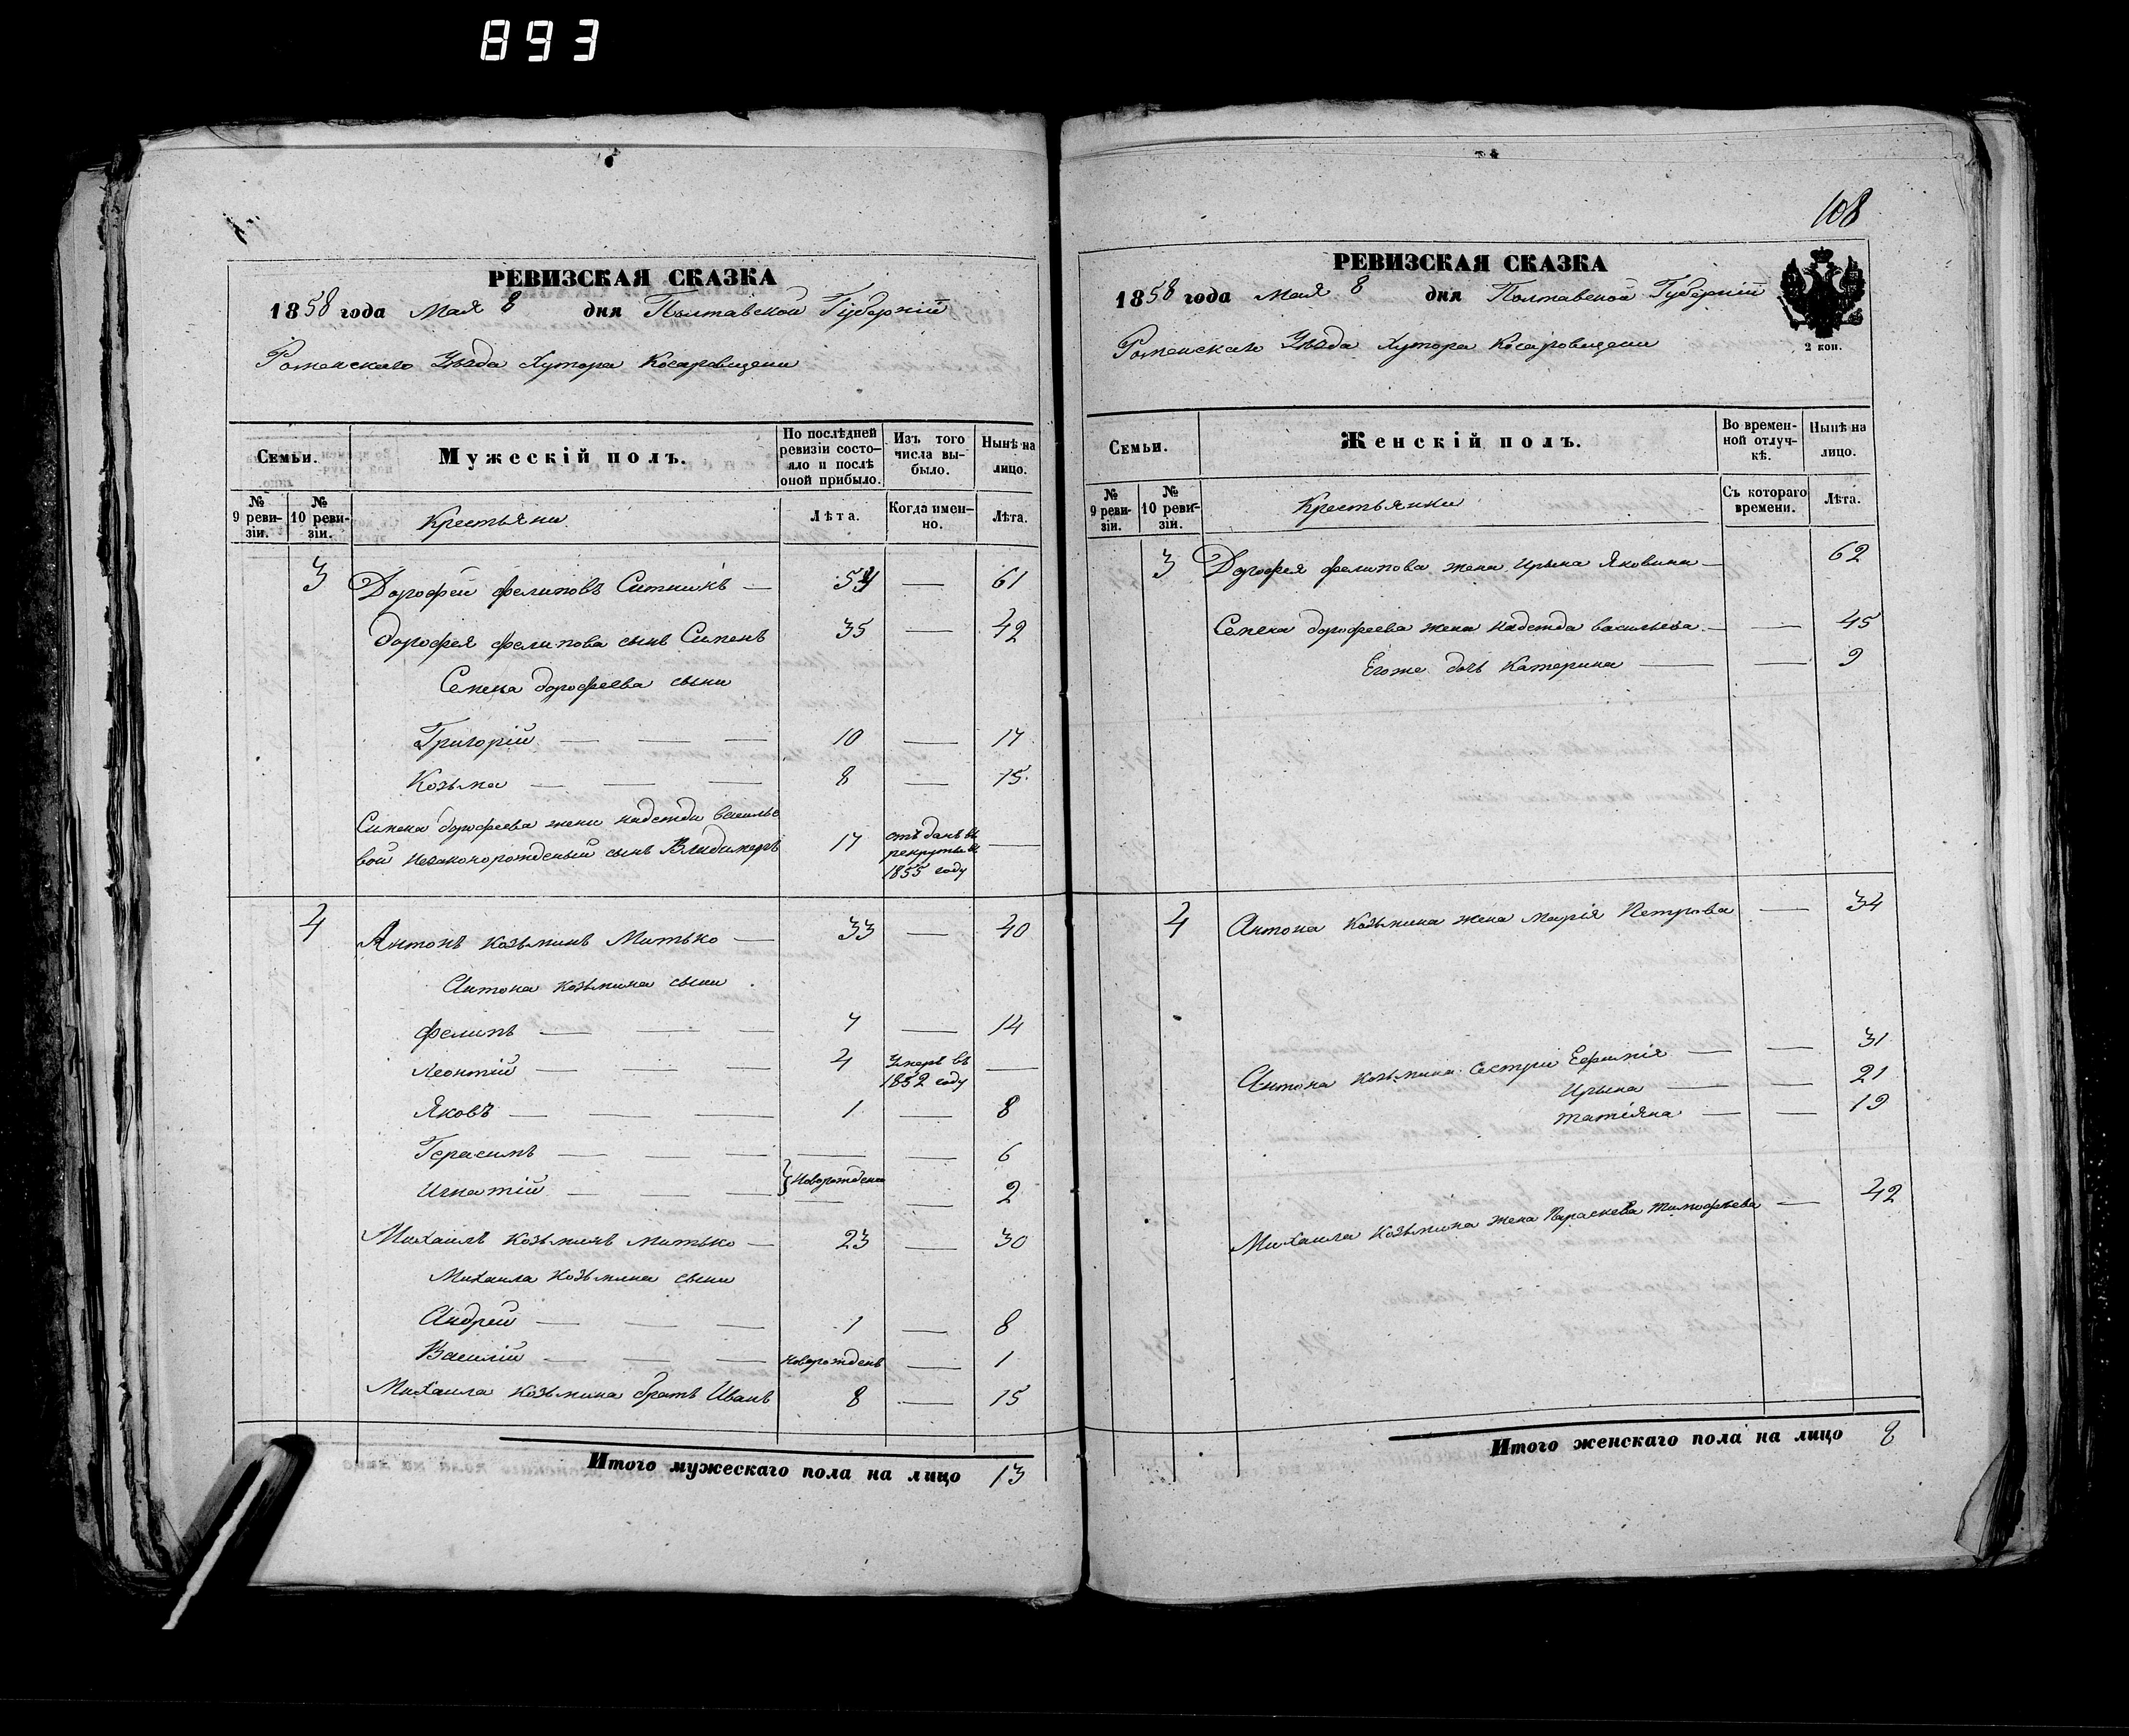 893
РЕВИЗСКАЯ СКАЗКА
1858 года Мая 8 дня Полтавской Губерніи
Роменскаго Уѣзда Хутора Косаровщени
Семьи.
Мужескій полъ.
По послѣдней ревизіи состояло и послѣ оной прибыло.
Изъ того числа выбыло.
Нынѣ на лицо.
№ 9 ревизіи.
№ 10 ревизіи.
Крестьяни
Лѣта.
Когда именно.
Лѣта.
3 Дорофей фелиповъ Ситникъ — 54 — 61
дорофея фелипова сынъ Сименъ 35 — 42
Семена дорофеева сыни
Григорій — — — 10 — 17
Козьма — — — 8 — 15
Симена дорофеева жени надежди василье
вой незаконорожденый сынъ Владимеръ 17 отъ данъ въ рекруты въ 1855 году —
4 Антонъ Козьминъ Митько — 33 — 40
Антона козьмина сыни
фелипъ — — — 7 — 14
Леонтій — — — 4 Умеръ въ 1852 году —
Яковъ — — — 1 — 8
Герасимъ — — — — — 6
} Новорождени
Игнатій — — — — — 2
Михаилъ козьминъ митько — 23 — 30
Михаила козьмина сыни
Андрей — — — 1 — 8
Василій — — — новорожденъ — 1
Михаила козьмина братъ Иванъ 8 — 15
Итого мужескаго пола на лицо 13
108
РЕВИЗСКАЯ СКАЗКА
1858 года Мая 8 дня Полтавской Губерніи
2 коп.
Роменскаго Уѣзда Хутора Косаровщени
Семьи.
Женскій полъ.
Во временной отлучкѣ.
Нынѣ на лицо.
№ 9 ревизіи.
№ 10 ревизіи.
Крестьянки
Съ котораго времени.
Лѣта.
3 Дорофея фелипова жена Ирына Яковина — 62
Семена дорофеева жена надежда васильева — — 45
Егоже дочь Катерина — — 9
4 Антона Козьмина жена Марія Петрова — 34
Антона козьмина сестри Ефимія — — 31
Ирына — — 21
татіяна — — 19
Михаила Козьмина жена Параскева тимофѣева — 42
Итого женскаго пола на лицо 8